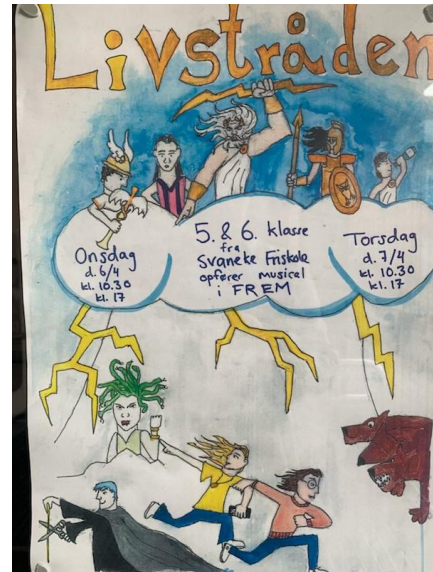 Livstråden
Onsdag
d. 6/4
kl. 10.30
kl. 17
5. & 6. klasse
fra
Svaneke Friskole
opfører musical
i FREM
Torsdag
d. 7/4
kl. 10.30
kl. 17